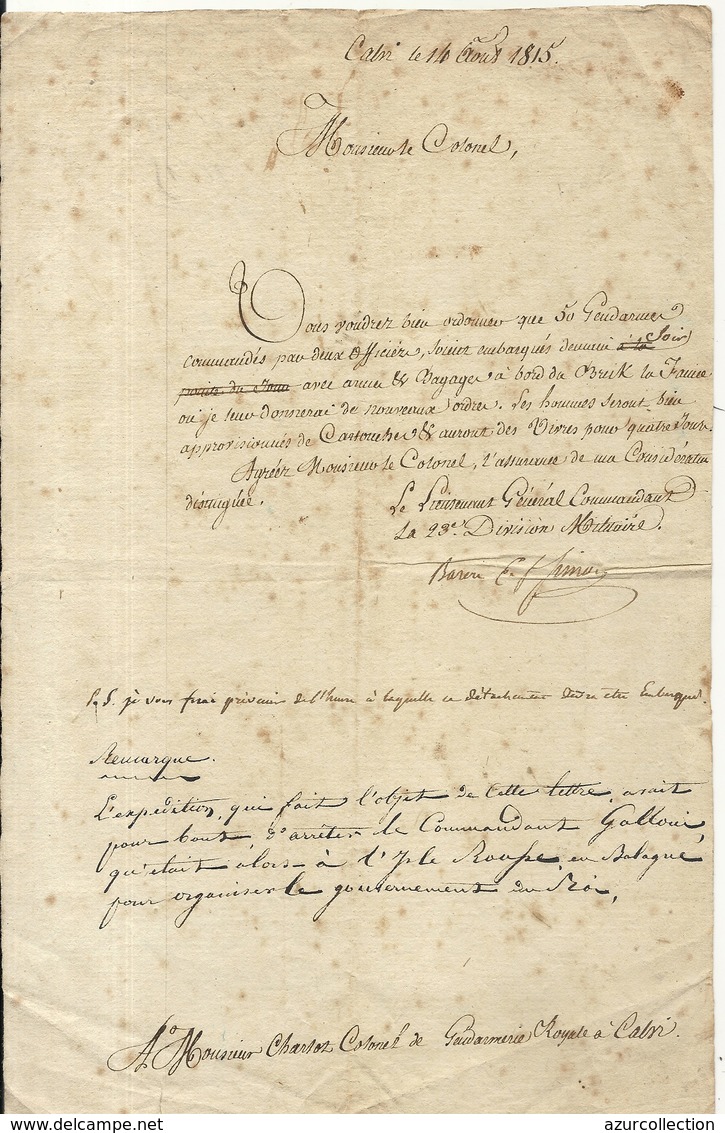 Calvi le 14 Août 1815.
Monsieur le Colonel,
Vous voudrez bien ordonner que 50 Gendarmes
commandés par deux officiers, soient embarqués demain à la Soir
pointe du Jour avec armes & Bagages à bord du Brick la
où je leur donnerai de nouveaux ordres. Les hommes seront bien
approvisionnés de Cartouches & auront des Vivres pour quatre Jours.
Agréez Monsieur le Colonel, l'assurance de ma Considération
distinguée.
Le Lieutenant Général Commandant
La 23e. Division Militaire.
Baron
P.S. je vous ferai prévenir de l'heure à laquelle ce détachement devra etre Embarqué.
Remarque.
L'expédition, qui fait l'objet de Cette lettre, avait
pour but, d'arrêter le Commandant Galloni,
qu'était alors à l'Isle Rousse, en Balagne,
pour organiser le gouvernement du Roi,
A Monsieur Charlot Colonel de Gendarmerie Royale à Calvi.
azurcollection